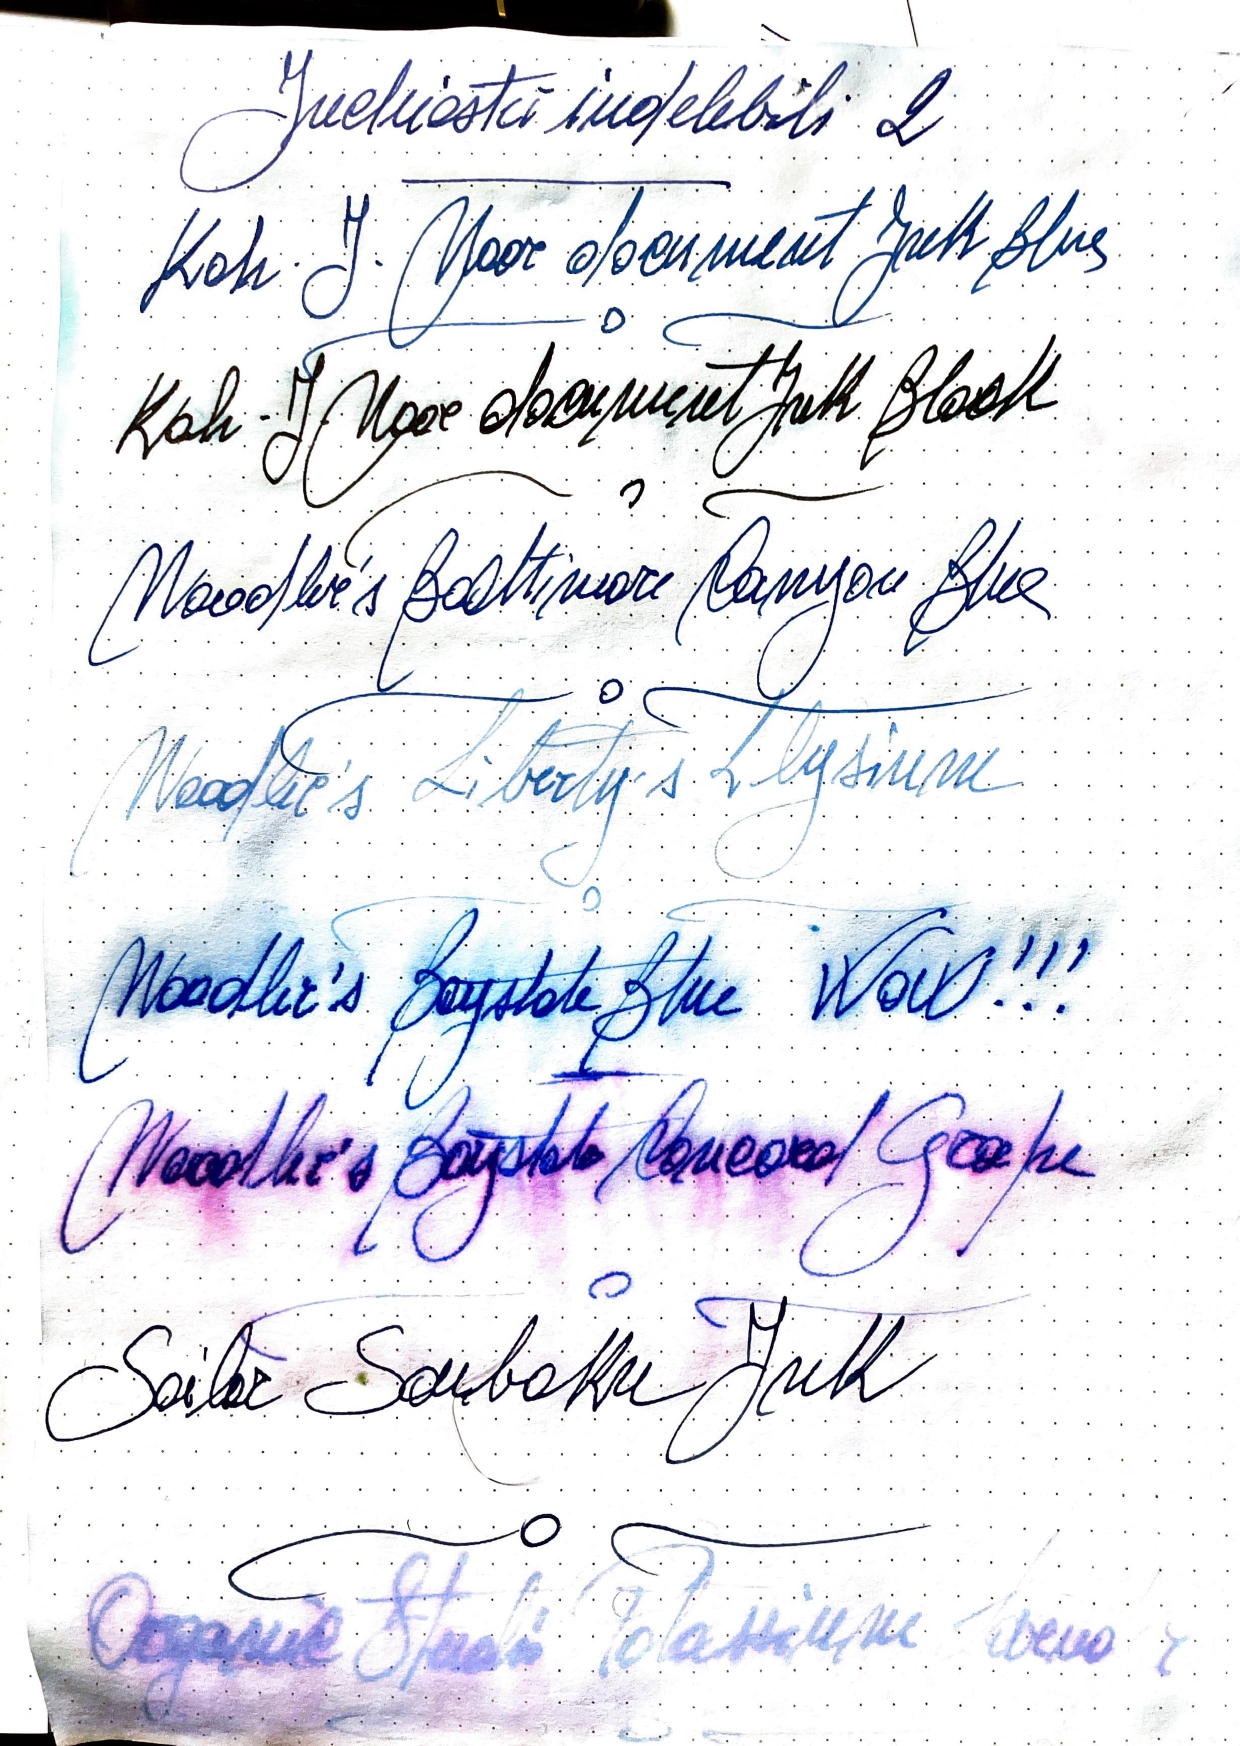 Inchiostri indelebili 2
Koh-I-Noor document Ink Blue
Koh-I Noor document Ink Black
Noodler's Baltimore Canyon Blue
Noodler's Liberty's Elysium
Noodler's Baystate Blue WOW!!!
Noodler's Baystate Concord Grape
Sailor Souboku Ink
Organic Studio Potassium